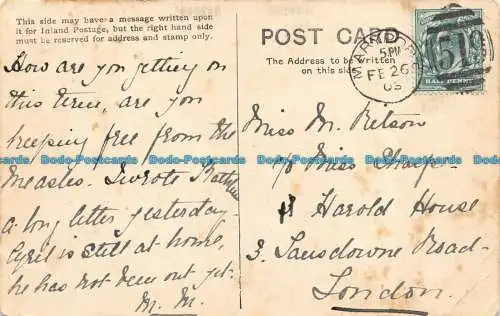 This side may have a message written upon
it for Inland Postage, but the right hand side
must be reserved for address and stamp only.
How are you getting on
this term, are you
keeping free from the
measles. I wrote
a long letter yesterday.
Cyril is still at home,
he has not been out yet.
M. M.
POST CARD
The Address to be written
on this side
5 PM
FE 26
519
HALF PENNY
Miss M. Pilson
c/o Miss Sharpe
Harold House
3. Lansdowne Road
London.
Dodo-Postcards Dodo-Postcards Dodo-Postcards Dodo-Postcards